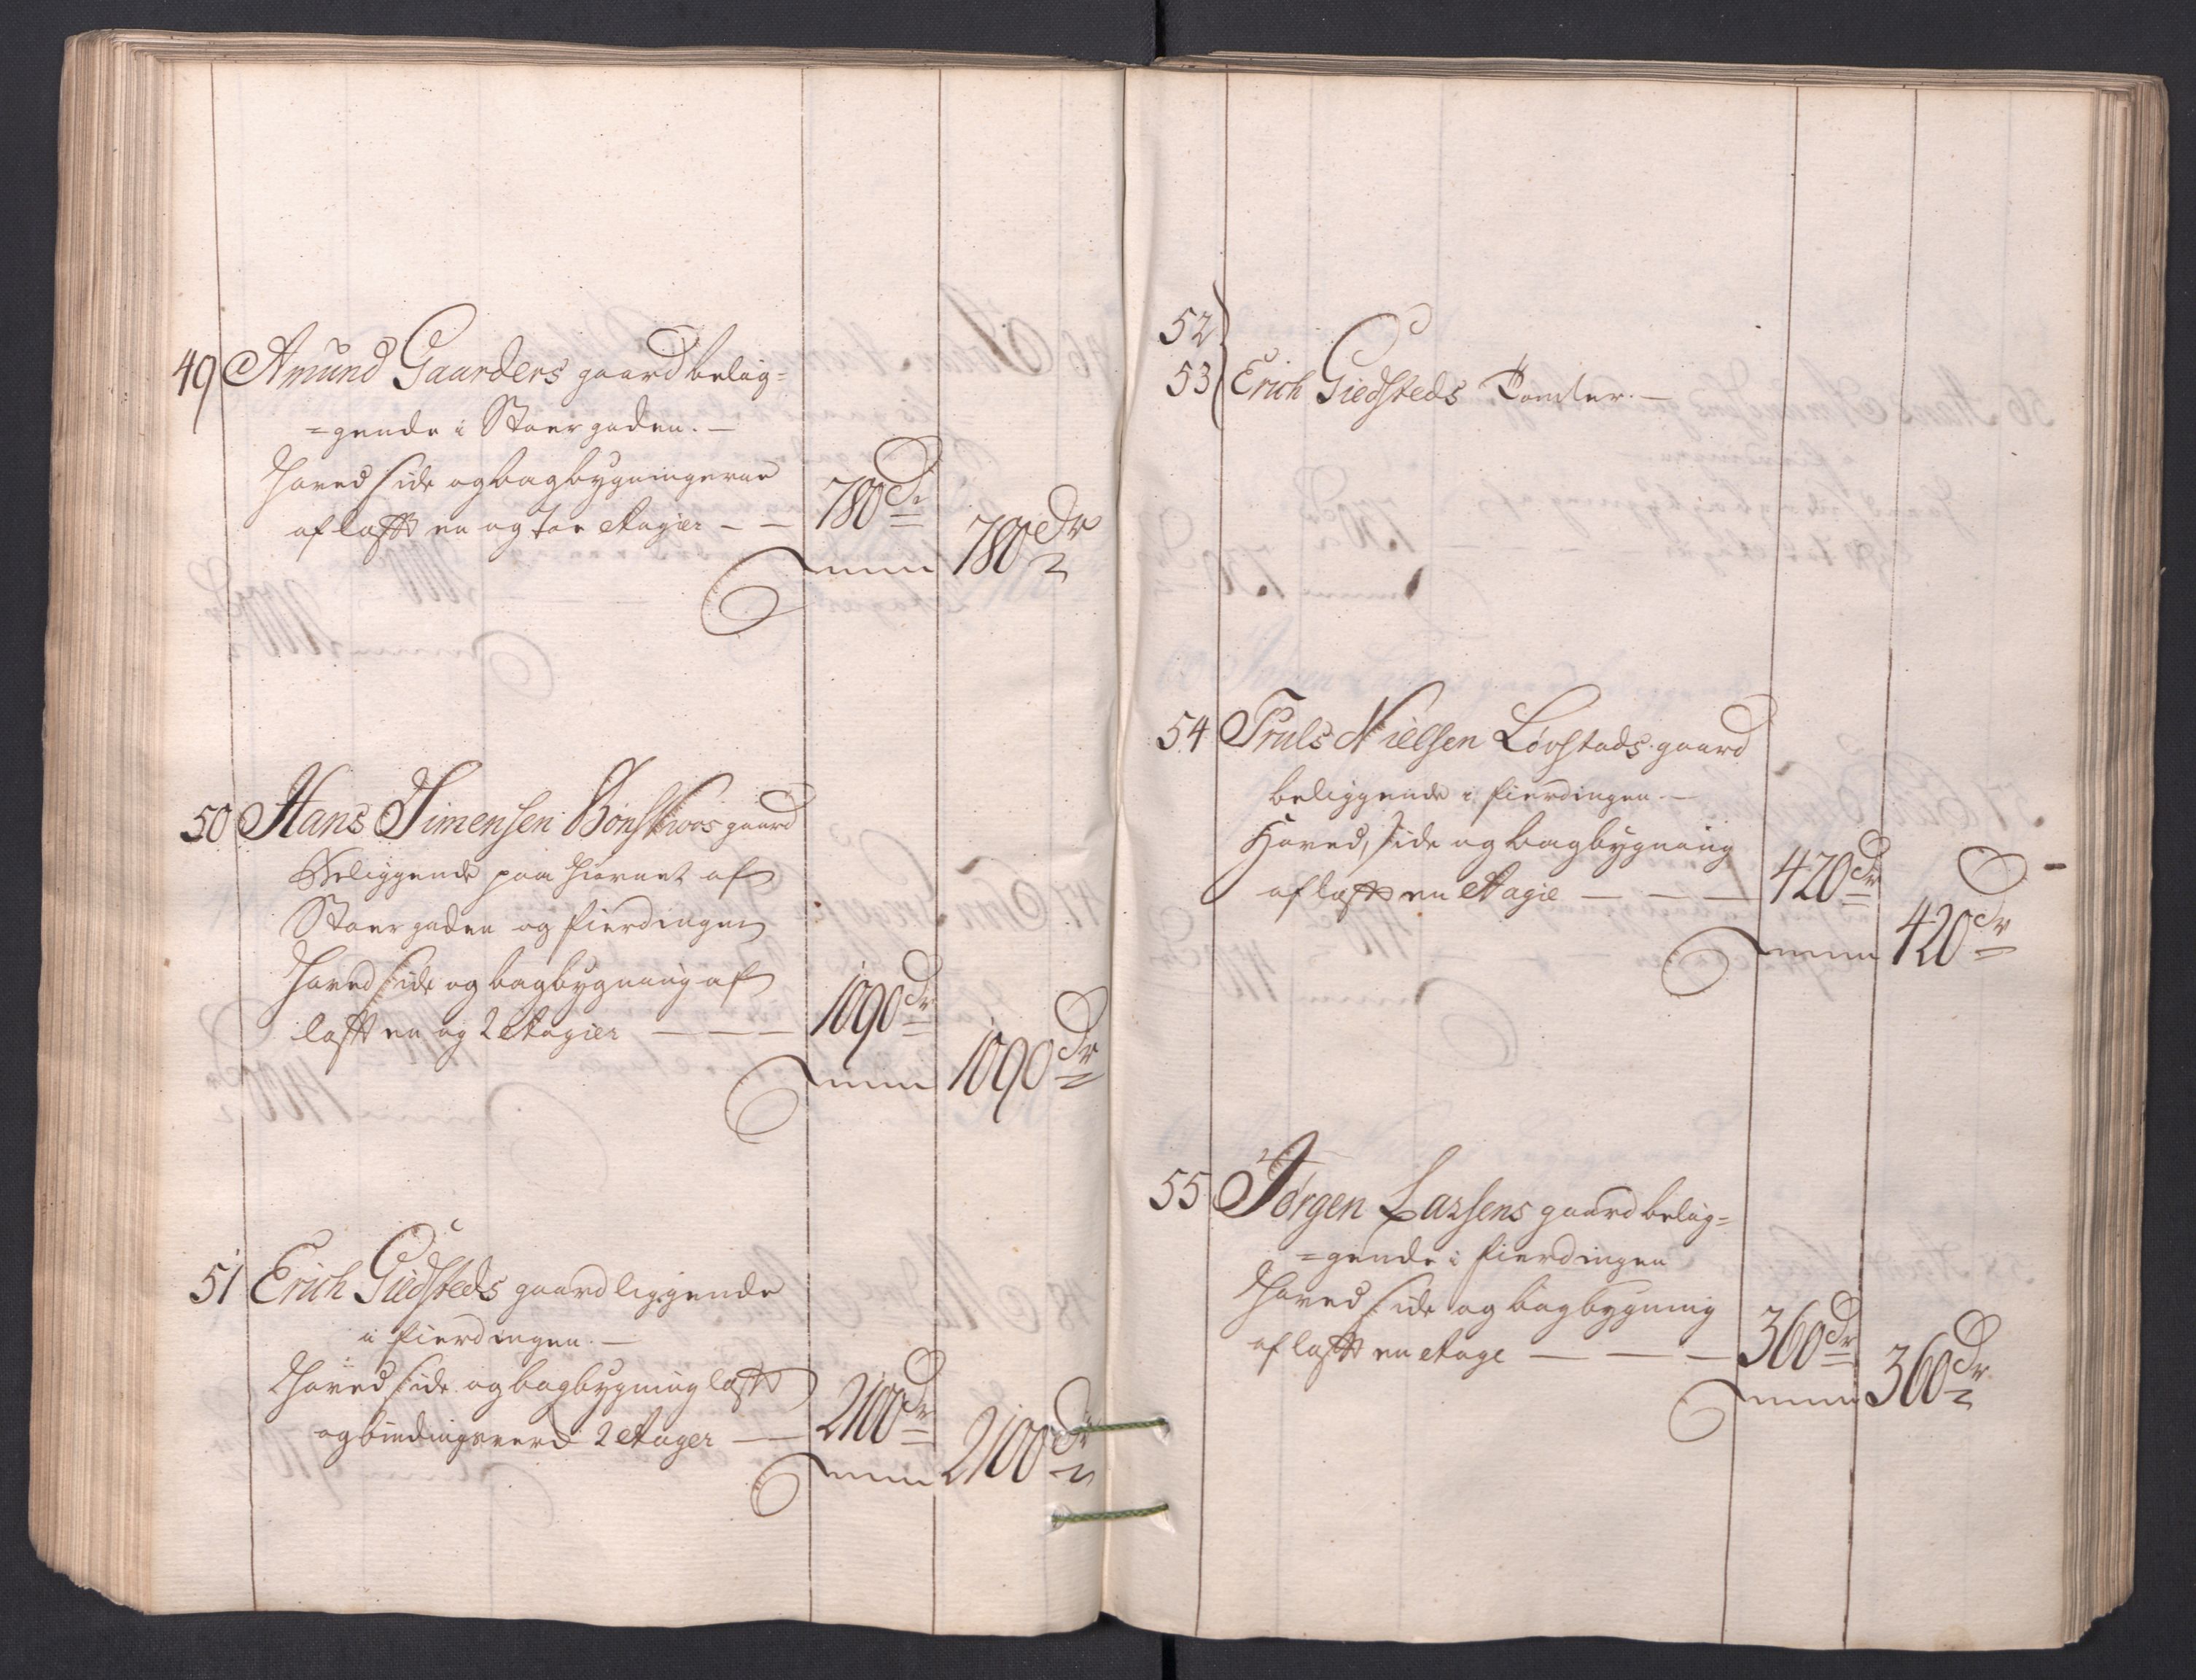 49 Amund Gaarders gaard belig=
=gende i Stoergaden. —
Hoved side og bagbygningerne
af laft en og toe Etagier — — 780 Dr
Summa 780 Dr
50 Hans Simensen gaard
Beliggende paa Hiørnet af
Stoergaden og fierdingen
Hoved side og bagbygning af
laft en og 2 Etagier — — — 1090 Dr
Summa 1090 Dr
51 Erich Giedsteds gaard liggende
i fierdingen. —
Hoved side og bagbygning laft
og bindingsverk 2 Etager — 2100 Dr
Summa 2100 Dr
52
53 Erich Giedsteds Tomter. —
54 Truls Nielsen Løvstads gaard
beliggende i fierdingen. —
Hoved, side og bagbygning
af laft en Etagie — — — 420 Dr
Summa 420 Dr
55 Jørgen Larsens gaard belig=
=gende i fierdingen
Hoved side og bagbygning
af laft en etage — — — 360 Dr
Summa 360 Dr